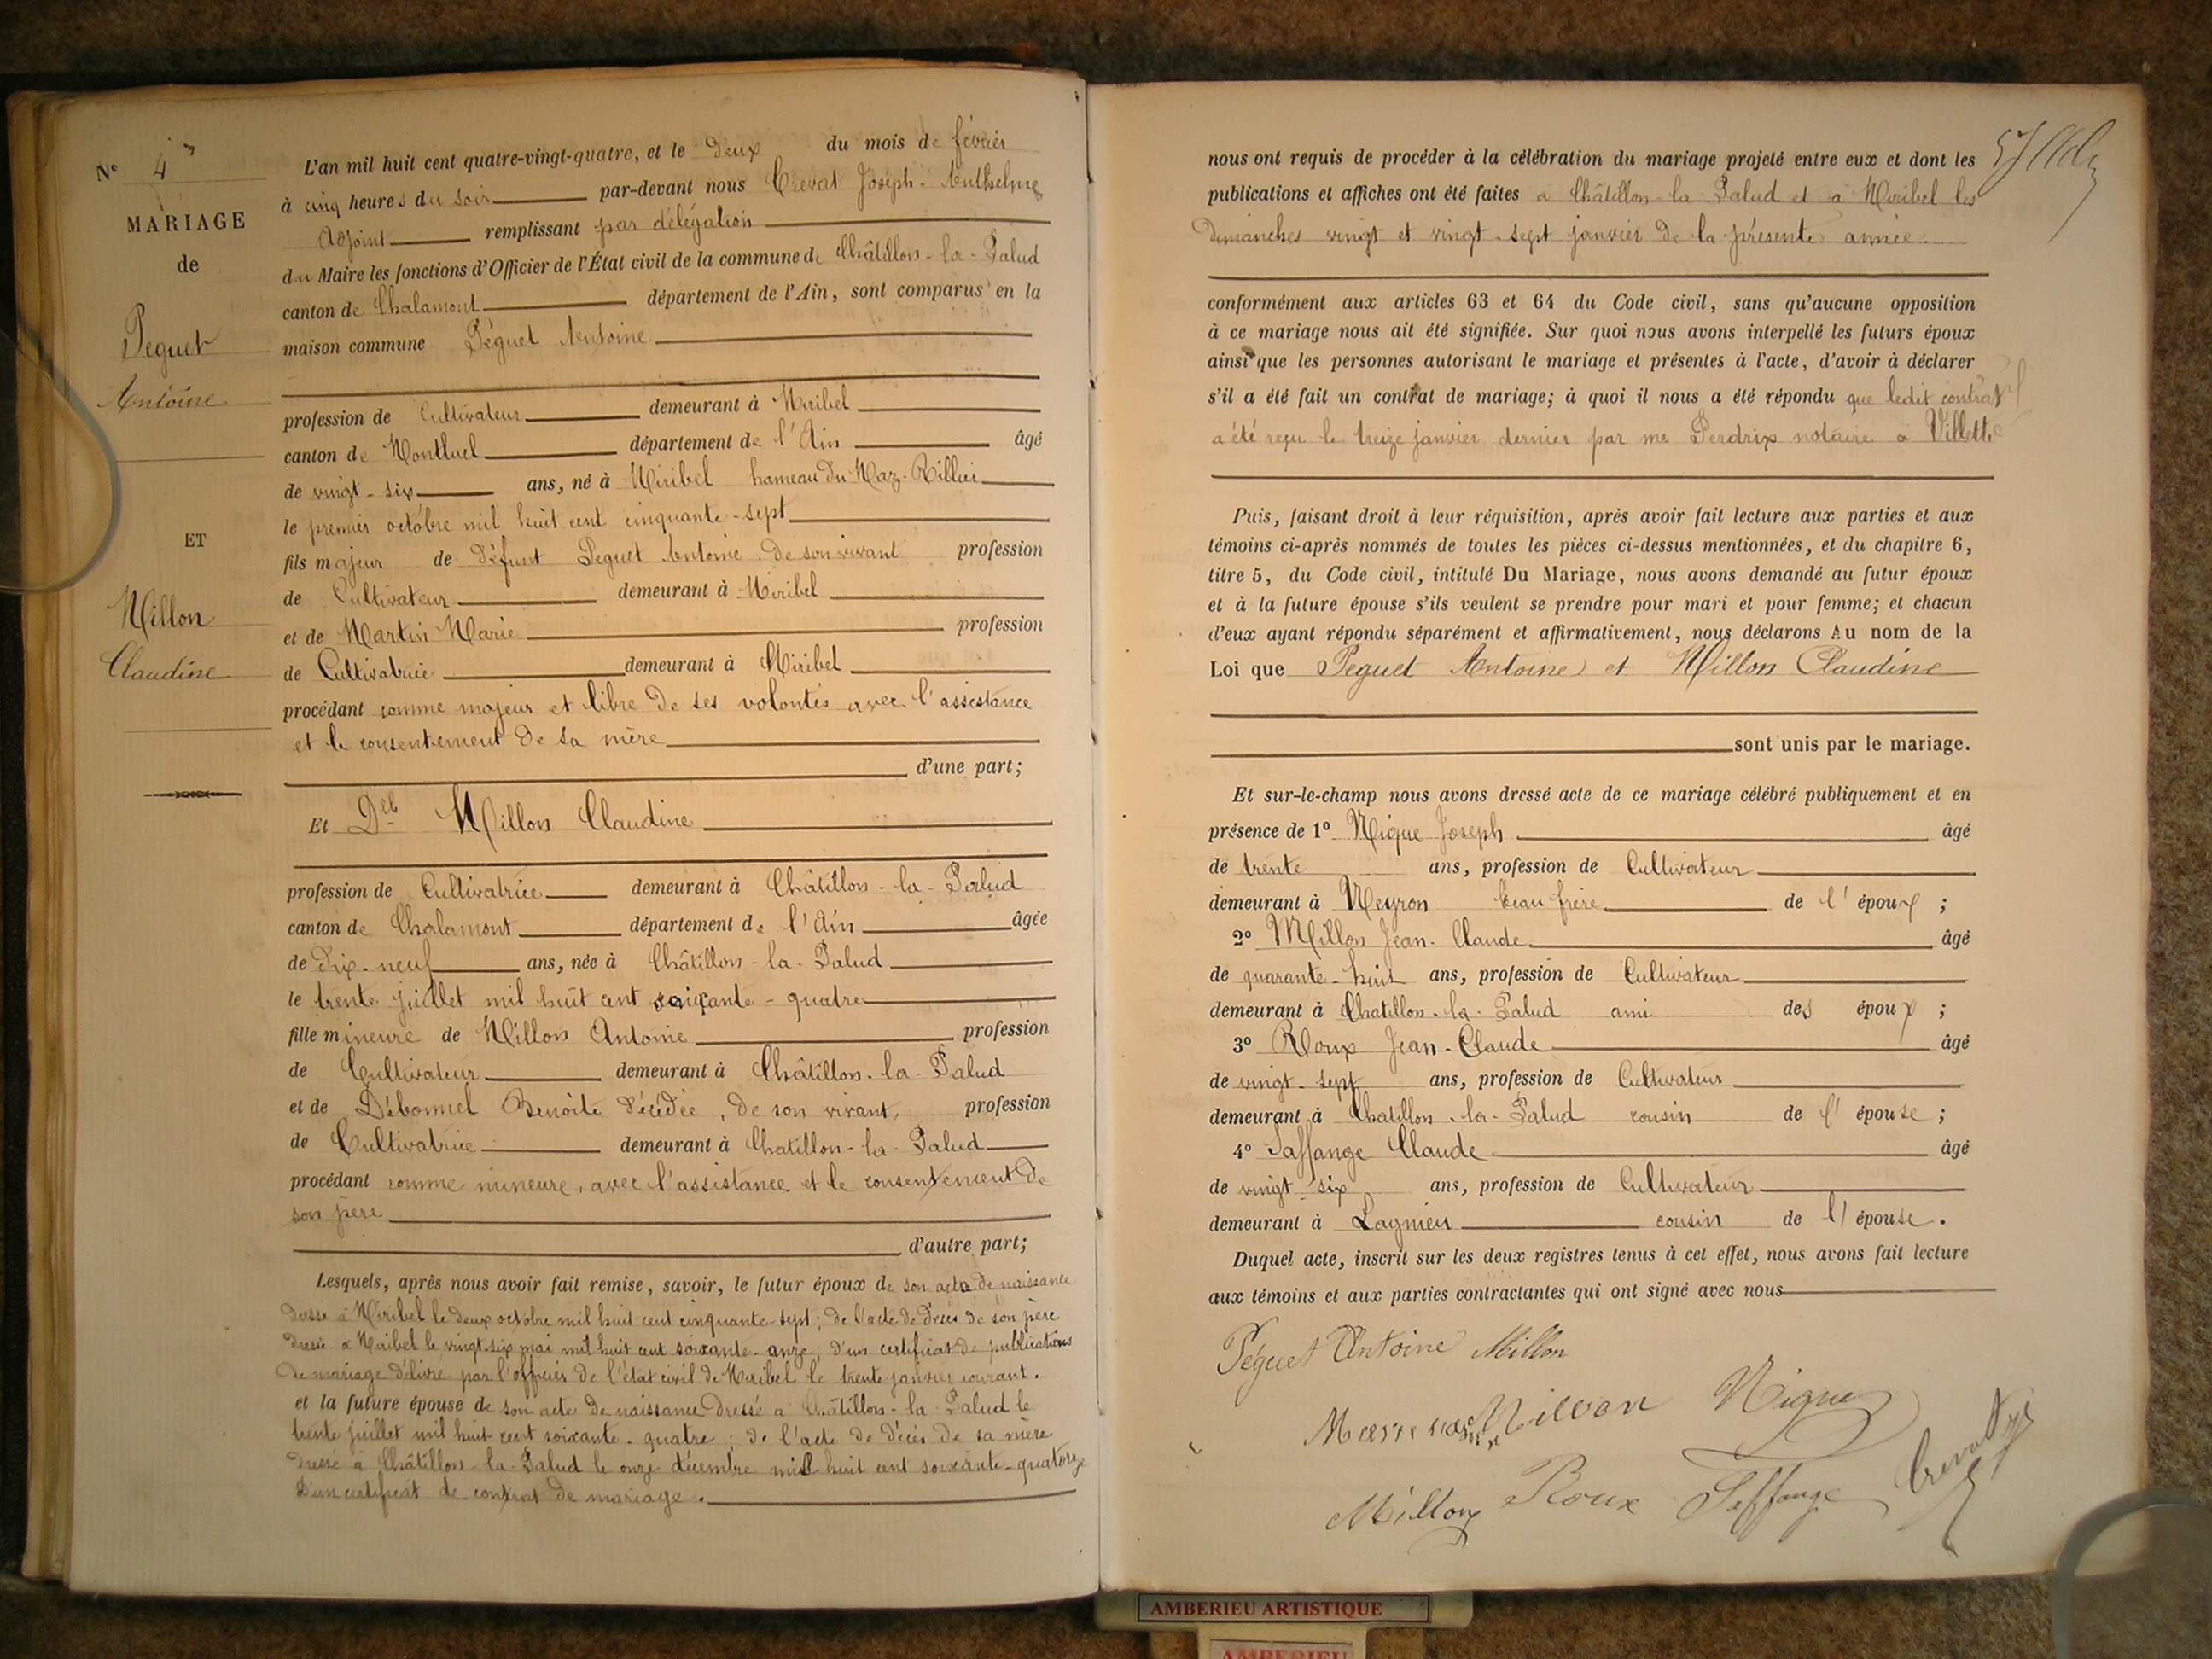 N° 4
MARIAGE
de
Peguet
Antoine
ET
Millon
Claudine
L'an mil huit cent quatre-vingt-quatre, et le deux du mois de février
à cinq heures du soir par-devant nous Crevat Joseph-Anthelme
Adjoint remplissant par délégation
du Maire les fonctions d'Officier de l'État civil de la commune de Châtillon-la-Palud
canton de Chalamont département de l'Ain, sont comparus en la
maison commune Péguet Antoine
profession de Cultivateur demeurant à Miribel
canton de Montluel département de l'Ain âgé
de vingt-six ans, né à Miribel hameau du Maz-Rillier
le premier octobre mil huit cent cinquante-sept
fils majeur de défunt Peguet Antoine de son vivant profession
de Cultivateur demeurant à Miribel
et de Martin Marie profession
de Cultivatrice demeurant à Miribel
procédant comme majeur et libre de ses volontés avec l'assistance
et le consentement de sa mère
d'une part;
Et Dlle Millon Claudine
profession de Cultivatrice demeurant à Châtillon-la-Palud
canton de Chalamont département de l'Ain âgée
de dix-neuf ans, née à Châtillon-la-Palud
le trente juillet mil huit cent soixante-quatre
fille mineure de Millon Antoine profession
de Cultivateur demeurant à Châtillon-la-Palud
et de Débonnel Benoîte décédée, de son vivant, profession
de Cultivatrice demeurant à Chatillon-la-Palud
procédant comme mineure, avec l'assistance et le consentement de
son père
d'autre part;
Lesquels, après nous avoir fait remise, savoir, le futur époux de son acte de naissance
dressé à Miribel le deux octobre mil huit cent cinquante-sept; de l'acte de décès de son père
dressé à Miribel le vingt-six mai mil huit cent soixante-onze; d'un certificat de publications
de mariage délivré par l'officier de l'état civil de Miribel le trente janvier courant.
et la future épouse de son acte de naissance dressé à Châtillon-la-Palud le
trente juillet mil huit cent soixante-quatre; de l'acte de décès de sa mère
dressé à Châtillon-la-Palud le onze décembre mil huit cent soixante-quatorze
D'un certificat de contrat de mariage.
nous ont requis de procéder à la célébration du mariage projeté entre eux et dont les
publications et affiches ont été faites à Châtillon-la-Palud et à Miribel les
dimanches vingt et vingt-sept janvier de la présente année
conformément aux articles 63 et 64 du Code civil, sans qu'aucune opposition
à ce mariage nous ait été signifiée. Sur quoi nous avons interpellé les futurs époux
ainsi que les personnes autorisant le mariage et présentes à l'acte, d'avoir à déclarer
s'il a été fait un contrat de mariage; à quoi il nous a été répondu que ledit contrat
a été reçu le treize janvier dernier par me Perdrix notaire à Villette
Puis, faisant droit à leur réquisition, après avoir fait lecture aux parties et aux
témoins ci-après nommés de toutes les pièces ci-dessus mentionnées, et du chapitre 6,
titre 5, du Code civil, intitulé Du Mariage, nous avons demandé au futur époux
et à la future épouse s'ils veulent se prendre pour mari et pour femme; et chacun
d'eux ayant répondu séparément et affirmativement, nous déclarons Au nom de la
Loi que Peguet Antoine et Millon Claudine
sont unis par le mariage.
Et sur-le-champ nous avons dressé acte de ce mariage célébré publiquement et en
présence de 1° Nique Joseph âgé
de trente ans, profession de Cultivateur
demeurant à Neyron beau frère de l'époux;
2° Millon Jean-Claude âgé
de quarante-huit ans, profession de Cultivateur
demeurant à Chatillon-la-Palud ami des époux;
3° Roux Jean-Claude âgé
de vingt-sept ans, profession de Cultivateur
demeurant à Chatillon-la-Palud cousin de l'épouse;
4° Saffange Claude âgé
de vingt-six ans, profession de Cultivateur
demeurant à Lagnieu cousin de l'épouse.
Duquel acte, inscrit sur les deux registres tenus à cet effet, nous avons fait lecture
aux témoins et aux parties contractantes qui ont signé avec nous
Péguet Antoine Millon
Millon Nique
Millon Roux Seffange Crevat
AMBERIEU ARTISTIQUE
AMBERIEU